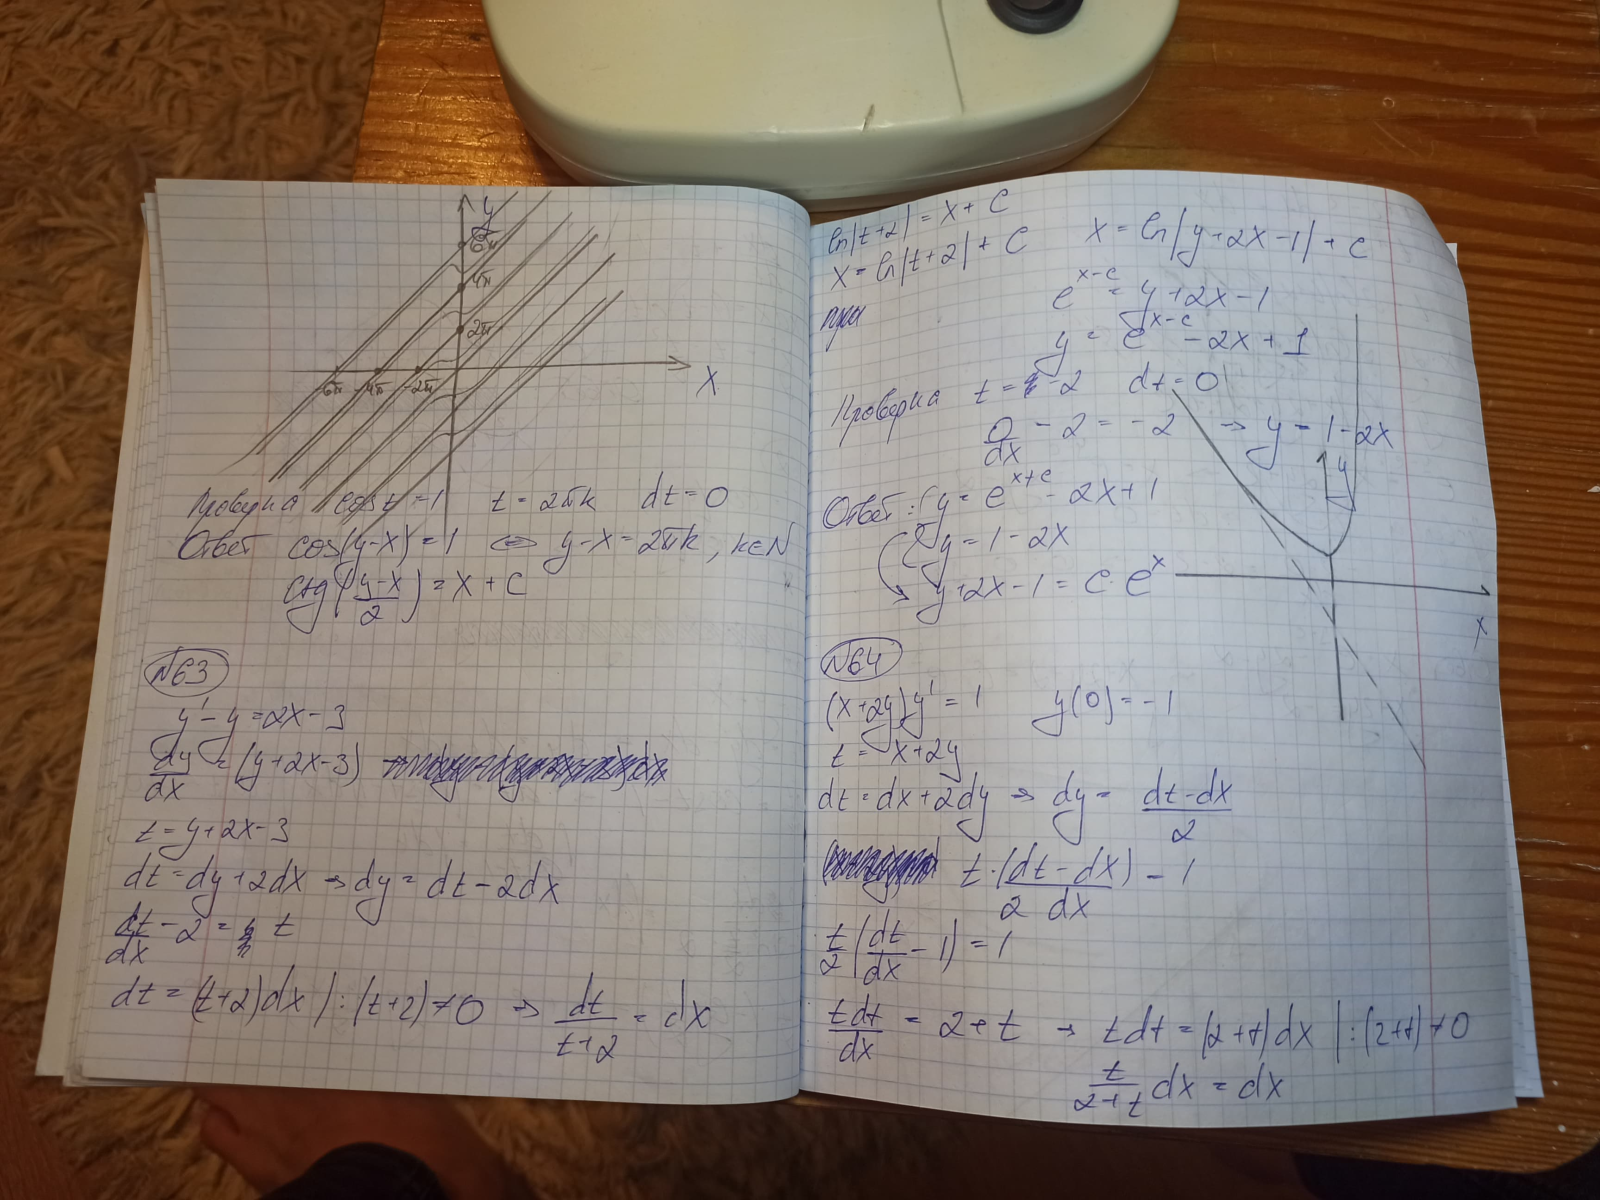 y
6π
4π
2π
6π -4π -2π
X
Проверка cos t = 1 t = 2πk dt = 0
Ответ cos(y-x) = 1 ⇔ y-x = 2πk, k∈N
ctg(y-x/2) = x + C
N63
y' - y = 2x - 3
dy/dx = (y+2x-3)
t = y+2x-3
dt = dy + 2dx → dy = dt - 2dx
dt/dx - 2 = t
dt = (t+2)dx |:(t+2)≠0 → dt/t+2 = dx
ln|t+2| = x + C
x = ln|t+2| + C
x = ln|y+2x-1| + C
e^x-c = y+2x-1
y = e^x-c - 2x + 1
Проверка t = -2 dt = 0
0/dx - 2 = -2 → y = 1-2x
y
Ответ: y = e^x+c - 2x+1
y = 1-2x
y+2x-1 = C·e^x
x
N64
(x+2y)y' = 1 y(0) = -1
t = x+2y
dt = dx+2dy → dy = dt-dx/2
t·(dt-dx)/2 dx - 1
t/2(dt/dx - 1) = 1
tdt/dx = 2+t → tdt = (2+t)dx |:(2+t)≠0
t/2+t dx = dx